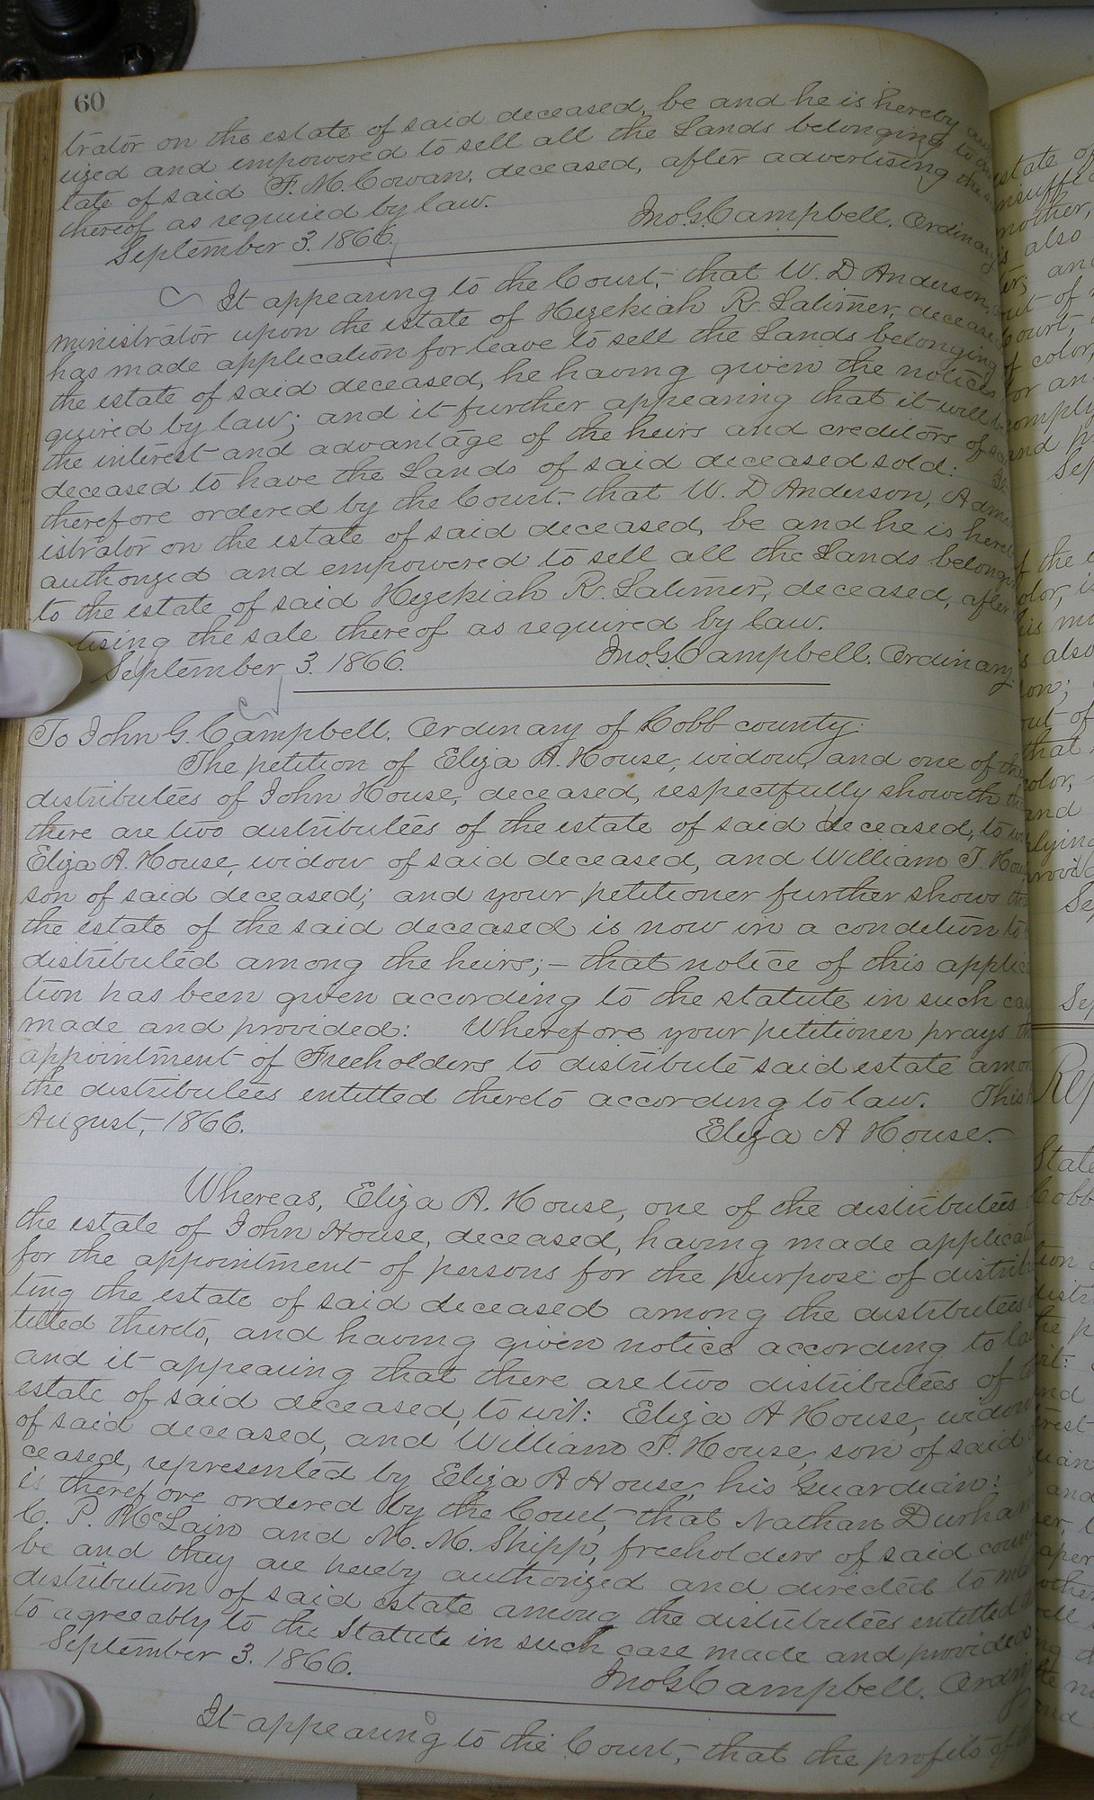 60
trator on the estate of said deceased, be and he is hereby
ized and empowered to sell all the Lands belonging to
tate of said F. M. Cowan, deceased, after advertising the
thereof as required by law.
September 3. 1866. Jno. G. Campbell. Ordinary
It appearing to the Court, that W. D Anderson,
ministrator upon the estate of Hezekiah R. Latimer, deceased
has made application for leave to sell the Lands belonging
the estate of said deceased, he having given the notices
quired by law; and it further appearing that it will be
the interest and advantage of the heirs and creditors of
deceased to have the Lands of said deceased sold: It
therefore ordered by the Court that W. D Anderson, Admin
istrator on the estate of said deceased, be and he is here
authorized and empowered to sell all the Lands belongin
to the estate of said Hezekiah R. Latimer, deceased, after
tising the sale thereof as required by law.
September 3. 1866. Jno. G. Campbell. Ordinary.
To John G. Campbell. Ordinary of Cobb county:
The petition of Eliza A. House, widow, and one of the
distributees of John House, deceased, respectfully showeth
there are two distributees of the estate of said deceased, to
Eliza A. House, widow of said deceased, and William T. Hou
son of said deceased; and your petitioner further shows
the estate of the said deceased is now in a condition to
distributed among the heirs; - that notice of this applica
tion has been given according to the statute in such ca
made and provided: Wherefore your petitioner prays
appointment of Freeholders to distribute said estate amon
the distributees entitled thereto according to law. This
August, 1866. Eliza A House.
Whereas, Eliza A. House, one of the distributees
the estate of John House, deceased, having made applicat
for the appointment of persons for the purpose of distrib
ting the estate of said deceased among the distributees
titled thereto, and having given notice according to la
and it appearing that there are two distributees of
estate of said deceased, to wit: Eliza A House, widow
of said deceased, and William T. House, son of said
ceased, represented by Eliza A House, his Guardian:
is therefore ordered by the Court, that Nathan Durham
C. P. McLain and M. M. Shipp, freeholders of said coun
be and they are hereby authorized and directed to
distribution of said estate among the distributees entitled
to agreeably to the Statute in such case made and provided
September 3. 1866. Jno G Campbell. Ordin
It appearing to the Court, that the profits of